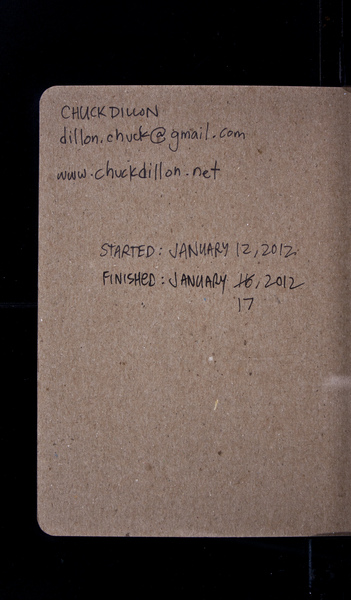 CHUCK DILLON
dillon.chuck@gmail.com
www.chuckdillon.net
STARTED: JANUARY 12, 2012.
FINISHED: JANUARY 16, 2012
17